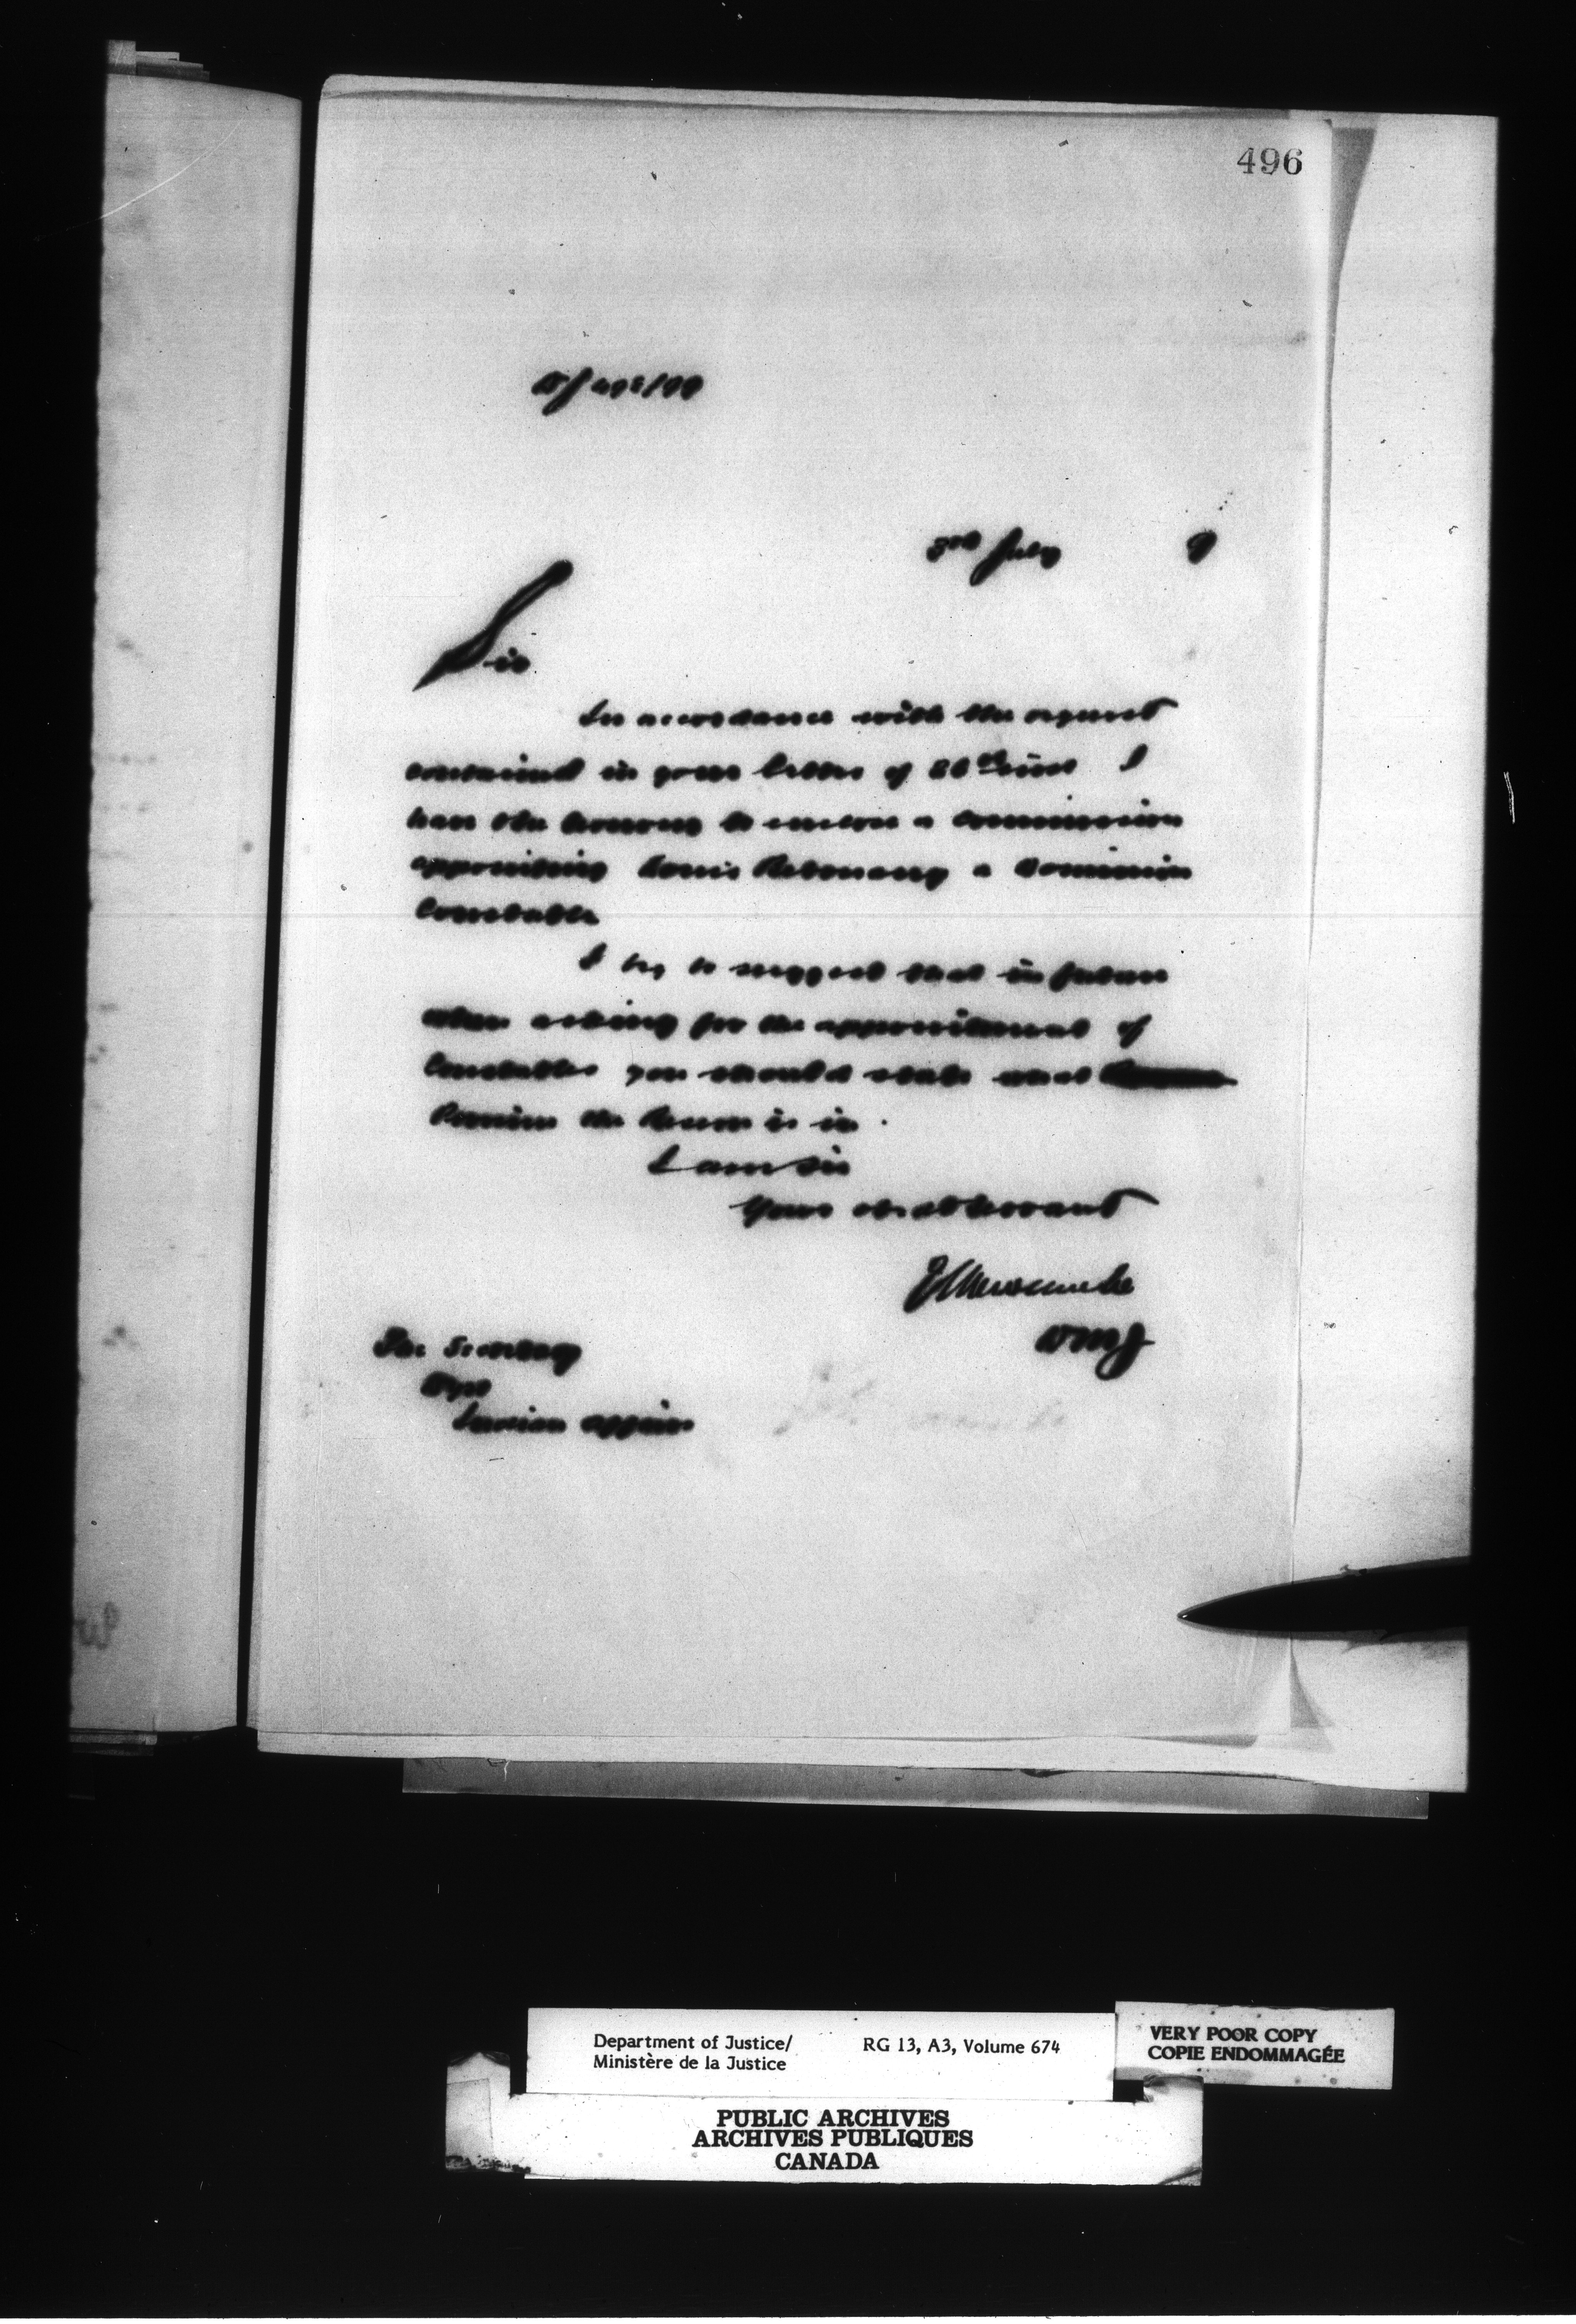 496
3rd July 9
Sir
In accordance with the request
contained in your letter of 26th ins I
have the honour to enclose a commission
appointing Louis a Dominion
Constable
I beg to suggest that in future
when asking for the appointment of
Constables you should state what
Province the man is in.
I am Sir
Your obedt servant
E L Newcombe
DMJ
The Secretary
Dept
Indian Affairs
Department of Justice/ RG 13, A3, Volume 674
Ministère de la Justice
VERY POOR COPY
COPIE ENDOMMAGÉE
PUBLIC ARCHIVES
ARCHIVES PUBLIQUES
CANADA